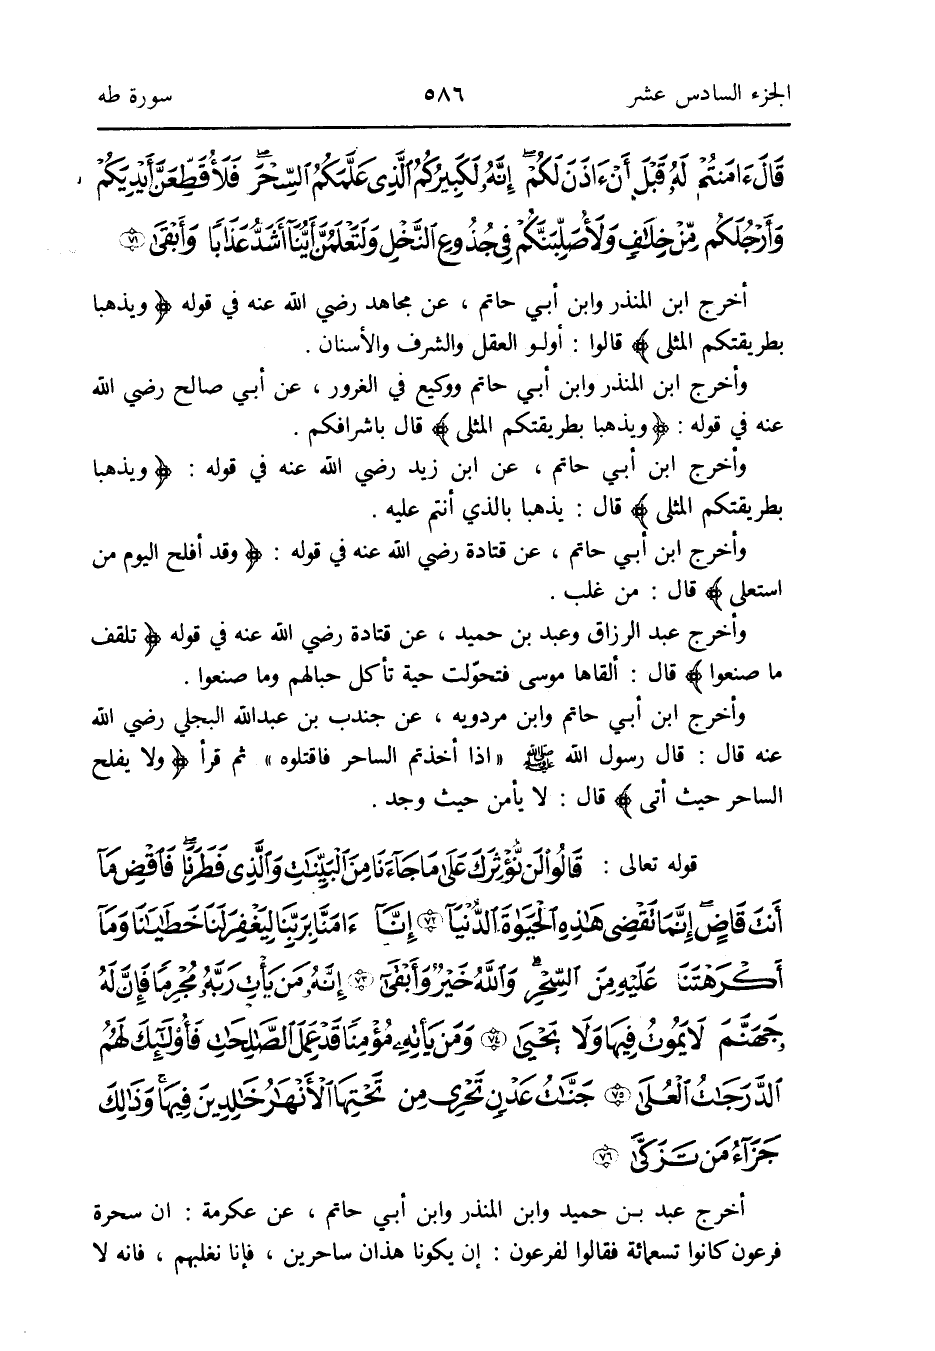 الجزء السادس عشر ٥٨٦ سورة طه
قَالَ ءَامَنتُمْ لَهُۥ قَبْلَ أَنْ ءَاذَنَ لَكُمْ ۖ إِنَّهُۥ لَكَبِيرُكُمُ ٱلَّذِى عَلَّمَكُمُ ٱلسِّحْرَ ۖ فَلَأُقَطِّعَنَّ أَيْدِيَكُمْ
وَأَرْجُلَكُم مِّنْ خِلَٰفٍ وَلَأُصَلِّبَنَّكُمْ فِى جُذُوعِ ٱلنَّخْلِ وَلَتَعْلَمُنَّ أَيُّنَآ أَشَدُّ عَذَابًا وَأَبْقَىٰ ٧١
أخرج ابن المنذر وابن أبي حاتم ، عن مجاهد رضي الله عنه في قوله ﴿ ويذهبا
بطريقتكم المثلى ﴾ قالوا : أولو العقل والشرف والأسنان .
وأخرج ابن المنذر وابن أبي حاتم ووكيع في الغرور ، عن أبي صالح رضي الله
عنه في قوله : ﴿ ويذهبا بطريقتكم المثلى ﴾ قال باشرافكم .
وأخرج ابن أبي حاتم ، عن ابن زيد رضي الله عنه في قوله : ﴿ ويذهبا
بطريقتكم المثلى ﴾ قال : يذهبا بالذي أنتم عليه .
وأخرج ابن أبي حاتم ، عن قتادة رضي الله عنه في قوله : ﴿ وقد أفلح اليوم من
استعلى ﴾ قال : من غلب .
وأخرج عبد الرزاق وعبد بن حميد ، عن قتادة رضي الله عنه في قوله ﴿ تلقف
ما صنعوا ﴾ قال : ألقاها موسى فتحوّلت حية تأكل حبالهم وما صنعوا .
وأخرج ابن أبي حاتم وابن مردويه ، عن جندب بن عبدالله البجلي رضي الله
عنه قال : قال رسول الله ﷺ «اذا أخذتم الساحر فاقتلوه» ثم قرأ ﴿ ولا يفلح
الساحر حيث أتى ﴾ قال : لا يأمن حيث وجد .
قوله تعالى : قَالُوا۟ لَن نُّؤْثِرَكَ عَلَىٰ مَا جَآءَنَا مِنَ ٱلْبَيِّنَٰتِ وَٱلَّذِى فَطَرَنَا ۖ فَٱقْضِ مَآ
أَنتَ قَاضٍ ۖ إِنَّمَا تَقْضِى هَٰذِهِ ٱلْحَيَوٰةَ ٱلدُّنْيَآ ٧٢ إِنَّآ ءَامَنَّا بِرَبِّنَا لِيَغْفِرَ لَنَا خَطَٰيَٰنَا وَمَآ
أَكْرَهْتَنَا عَلَيْهِ مِنَ ٱلسِّحْرِ ۗ وَٱللَّهُ خَيْرٌ وَأَبْقَىٰٓ ٧٣ إِنَّهُۥ مَن يَأْتِ رَبَّهُۥ مُجْرِمًا فَإِنَّ لَهُۥ
جَهَنَّمَ لَا يَمُوتُ فِيهَا وَلَا يَحْيَىٰ ٧٤ وَمَن يَأْتِهِۦ مُؤْمِنًا قَدْ عَمِلَ ٱلصَّٰلِحَٰتِ فَأُو۟لَٰٓئِكَ لَهُمُ
ٱلدَّرَجَٰتُ ٱلْعُلَىٰ ٧٥ جَنَّٰتُ عَدْنٍ تَجْرِى مِن تَحْتِهَا ٱلْأَنْهَٰرُ خَٰلِدِينَ فِيهَا ۚ وَذَٰلِكَ
جَزَآءُ مَن تَزَكَّىٰ ٧٦
أخرج عبد بن حميد وابن المنذر وابن أبي حاتم ، عن عكرمة : ان سحرة
فرعون كانوا تسعمائة فقالوا لفرعون : إن يكونا هذان ساحرين ، فإنا نغلبهم ، فانه لا